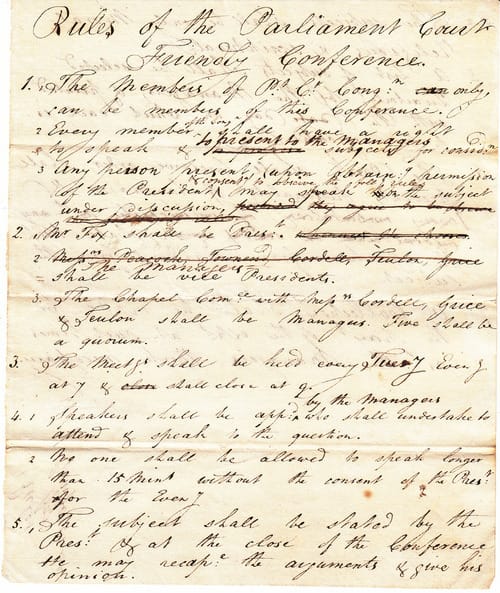 Rules of the Parliament Court
Friendly Conference.
1. The Members of Pt. Ct. Congn. can only,
can be members of this Conference.
2 Every member of the Congn. shall have a right
to speak & to present to the Managers subjects for considn.
3 Any person present, upon obtaing. permission
of the President, & consent to observe the rules may speak on the subject
under discussion,
2. Mr Fox shall be Prest.
2 Messrs Peacock, Townend, Cordell, Teulon, Grice
The Managers
shall be vice Presidents.
3. The Chapel Come. with Messrs Cordell, Grice
& Teulon shall be Managers. Five shall be
a quorum.
3. The Meetgs shall be held every Tuesy Eveng
at 7 & close shall close at 9.
by the Managers
4. 1 Speakers shall be appd. who shall undertake to
attend & speak to the question.
2 No one shall be allowed to speak longer
than 15 Mints without the consent of the Prest.
for the Eveng
5. 1 The subject shall be stated by the
Prest. & at the close of the Conference
He may recape. the arguments & give his
opinion.